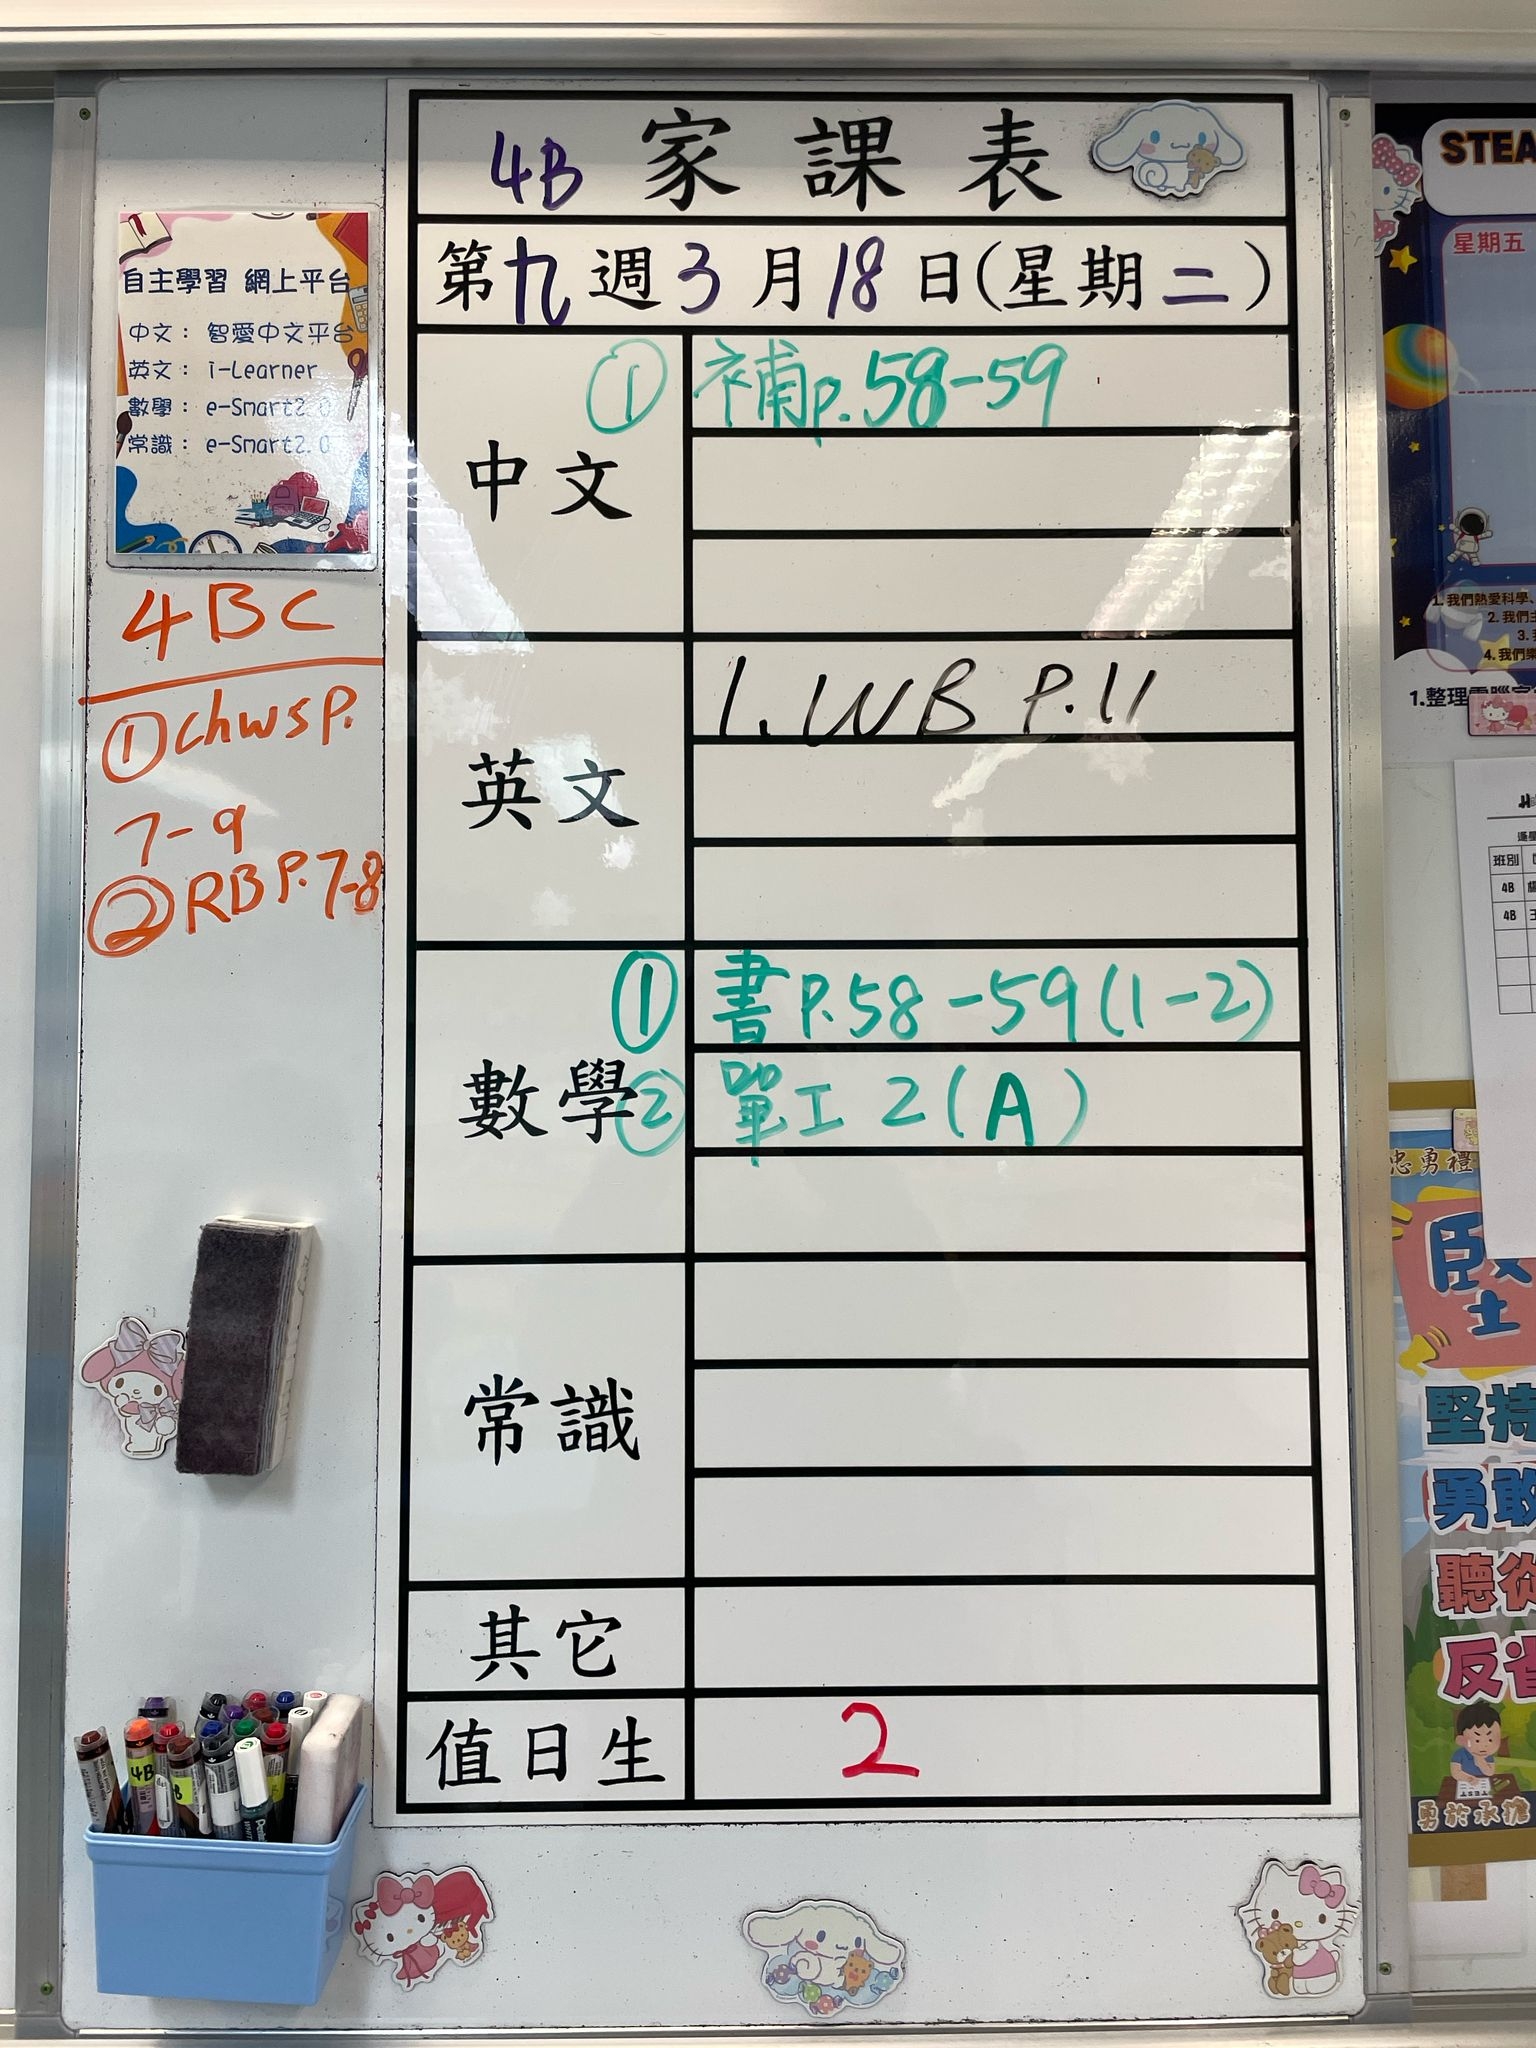 4B 家課表
第九週3月18日(星期二)
中文
① 補p.58-59
英文
1. WB P.11
數學
① 書P.58-59(1-2)
② 單工2(A)
常識
其它
值日生
2
自主學習 網上平台
中文： 智愛中文平台
英文： i-Learner
數學： e-Smart2.0
常識： e-Smart2.0
4BC
① chwsP.
7-9
② RB P.7-8
4B
STEA
星期五
1. 我們熱愛科學、
2. 我們
3.
4. 我們樂
1.整理電腦室
班別
4B
4B
忠勇禮
士
堅持
勇敢
聽從
反省
勇於承擔